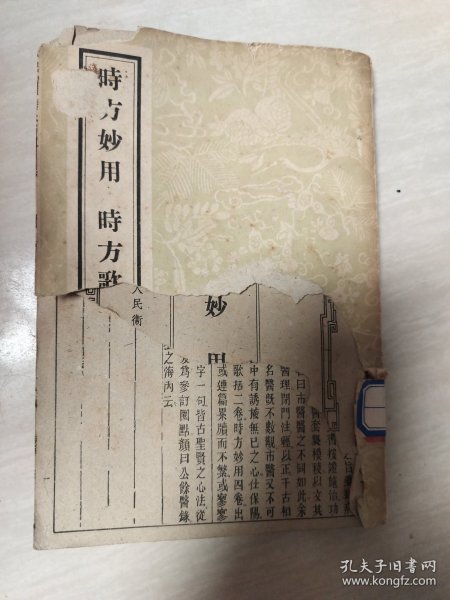 時方妙用 時方歌
人民衞
妙用
曰市醫醫之不同如此余
醫理閉門注經以正千古相
名醫旣不數覯市醫又不可
中有誘掖無已之心仕保陽
歌括二卷時方妙用四卷出
或連篇累牘而不繁或寥寥
字一句皆古聖賢之心法從
爰爲參訂圈點顏曰公餘醫錄
之海內云
孔夫子旧书网
www.kongfz.com